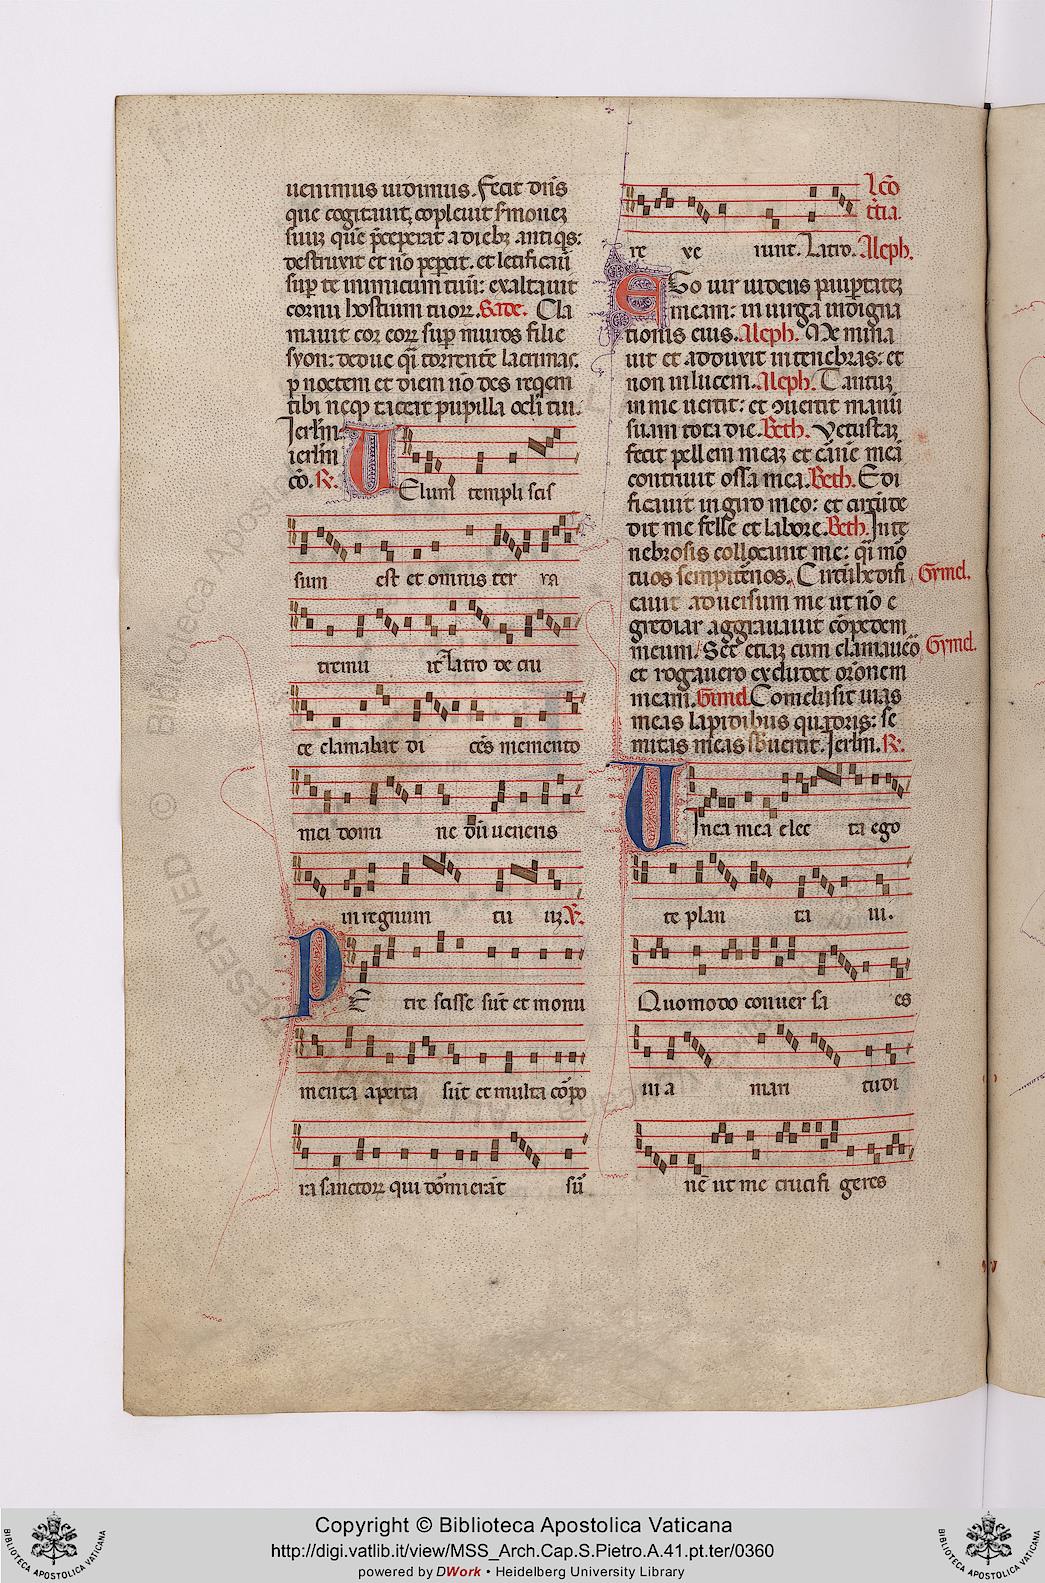 uenimus uidimus. Fecit dñs
que cogitauit; cõpleuit s̃monez
suuz quẽ p̃ceperat a diebz antiqs:
destruxit et nõ pepcit. et letificauit
sup te inimicum tuũ: exaltauit
cornu hostium tuorꝝ. Sade. Cla
mauit cor eorꝝ sup muros filie
syon: deduc qĩ torrentẽ lacrimas.
p noctem et diem nõ des reqem
tibi neqꝫ taceat pupilla ocli tui.
Jerlm̃
ierlm̃
cõ. R.
Uelum templi scis
sum est et omnis ter ra
tremu it Latro de cru
ce clamabat di cẽs memento
mei domi ne dũ ueneris
in regnum tu uz. V.
PE tre scisse sũt et monu
menta aperta sũt et multa cõpo
ra sanctorꝝ qui dormierãt sur̃
re xe runt. Latro. Aleph.
Lcõ
t̃tia.
EGo uir uidens paupertatez
meam: in uirga indigna
tionis eius. Aleph. Me mina
uit et adduxit in tenebras: et
non in lucem. Aleph. Tantuz
in me uertit: et ꝯuertit manũ
suam tota die. Beth. Vetustaz
fecit pellem meaz et carnẽ meã
contriuit ossa mea. Beth. Edi
ficauit in giro meo: et circũde
dit me felle et labore. Beth. In te
nebrosis collocauit me: qĩ mor
tuos sempiternos. Circũhedifi Gymel.
cauit aduersum me ut nõ e
grediar aggrauauit cõpedem
meum. Sed etiaz cum clamauerõ Gymel.
et rogauero exclusit orõnem
meam. Gimel. Conclusit uias
meas lapidibus quadris: se
mitas meas sbuertit. Jerlm̃. R.
UInea mea elec ta ego
te plan ta ui.
Quomodo conuer sa es
in a mari tudi
nẽ ut me crucifi geres
Copyright © Biblioteca Apostolica Vaticana
http://digi.vatlib.it/view/MSS_Arch.Cap.S.Pietro.A.41.pt.ter/0360
powered by DWork • Heidelberg University Library